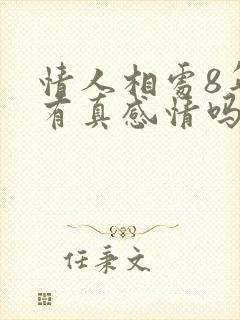 情人相处8年
有真感情吗
任秉文